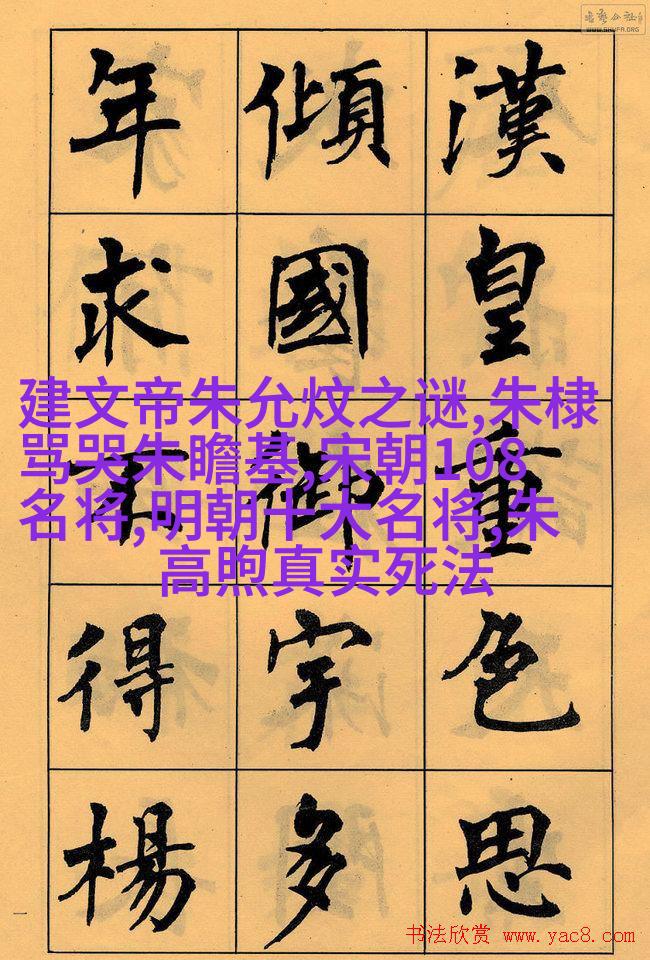 漢皇重色思
傾國御宇多
年求不得楊
建文帝朱允炆之谜,朱棣
骂哭朱瞻基,宋朝108
名将,明朝十大名将,朱
高煦真实死法
一
WWW.SHUFA.ORG
书法欣赏 www.yac8.com